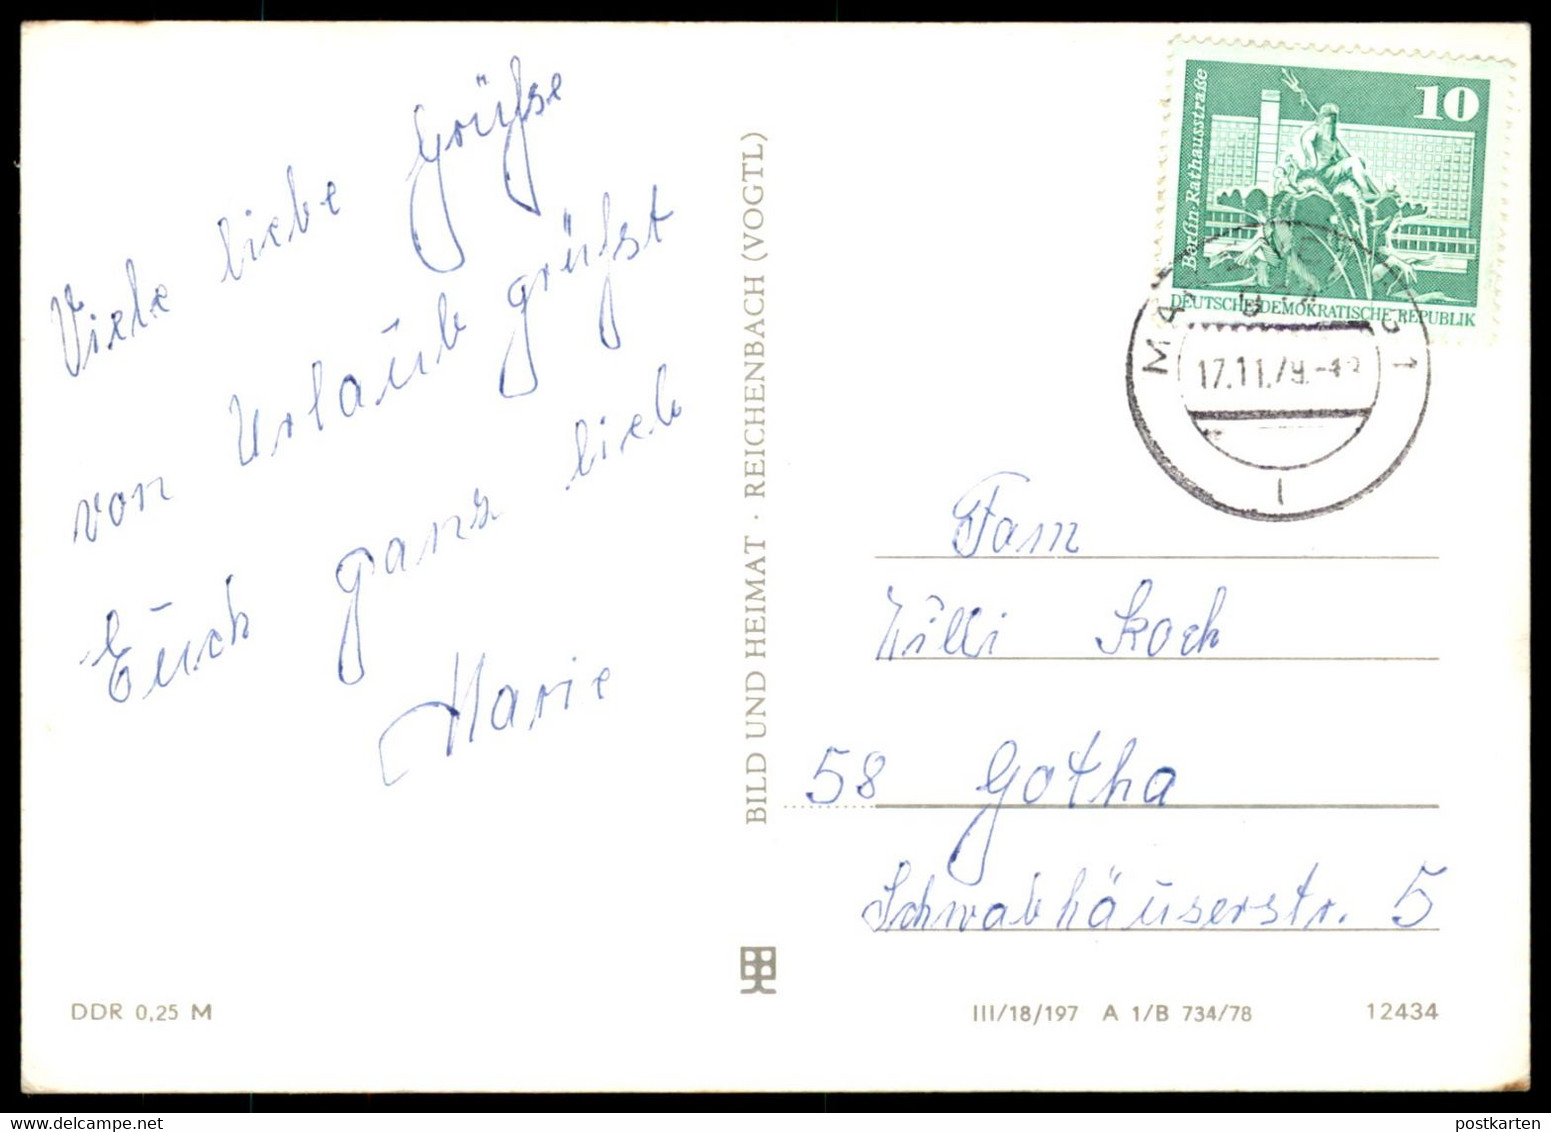 Viele liebe Grüße
von Urlaub grüßt
Euch ganz lieb
Marie
BILD UND HEIMAT · REICHENBACH (VOGTL)
10
Berlin-Rathausstraße
DEUTSCHE DEMOKRATISCHE REPUBLIK
17.11.79.-
1
Fam
Willi Koch
58 Gotha
Schwabhäuserstr. 5
DDR 0,25 M
III/18/197 A 1/B 734/78
12434
postkarten